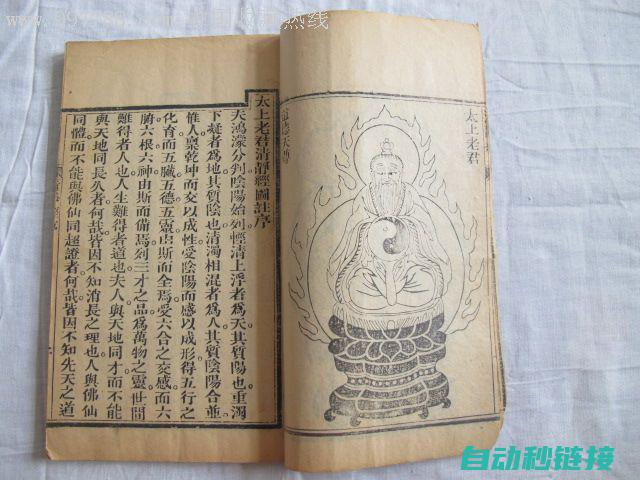 热线
太上老君
道德天尊
太上老君清靜經圖註序
天鴻濛分判陰陽始列輕清上浮者為天其質陽也重濁
下凝者為地其質陰也清濁相混者為人其質陰陽合並
惟人稟乾坤而交以成性受陰陽而感以成形得五行之
化育而五臟五德五靈由斯而全焉受六合之交感而六
腑六根六神由斯而備焉列三才之品為萬物之靈世間
難得者人也人生難得者道也夫人與天地同才而不能
與天地同長久者何哉皆因不知消長之理也人與佛仙
同體而不能與佛仙同超證者何哉皆因不知先天之道
自动秒链接